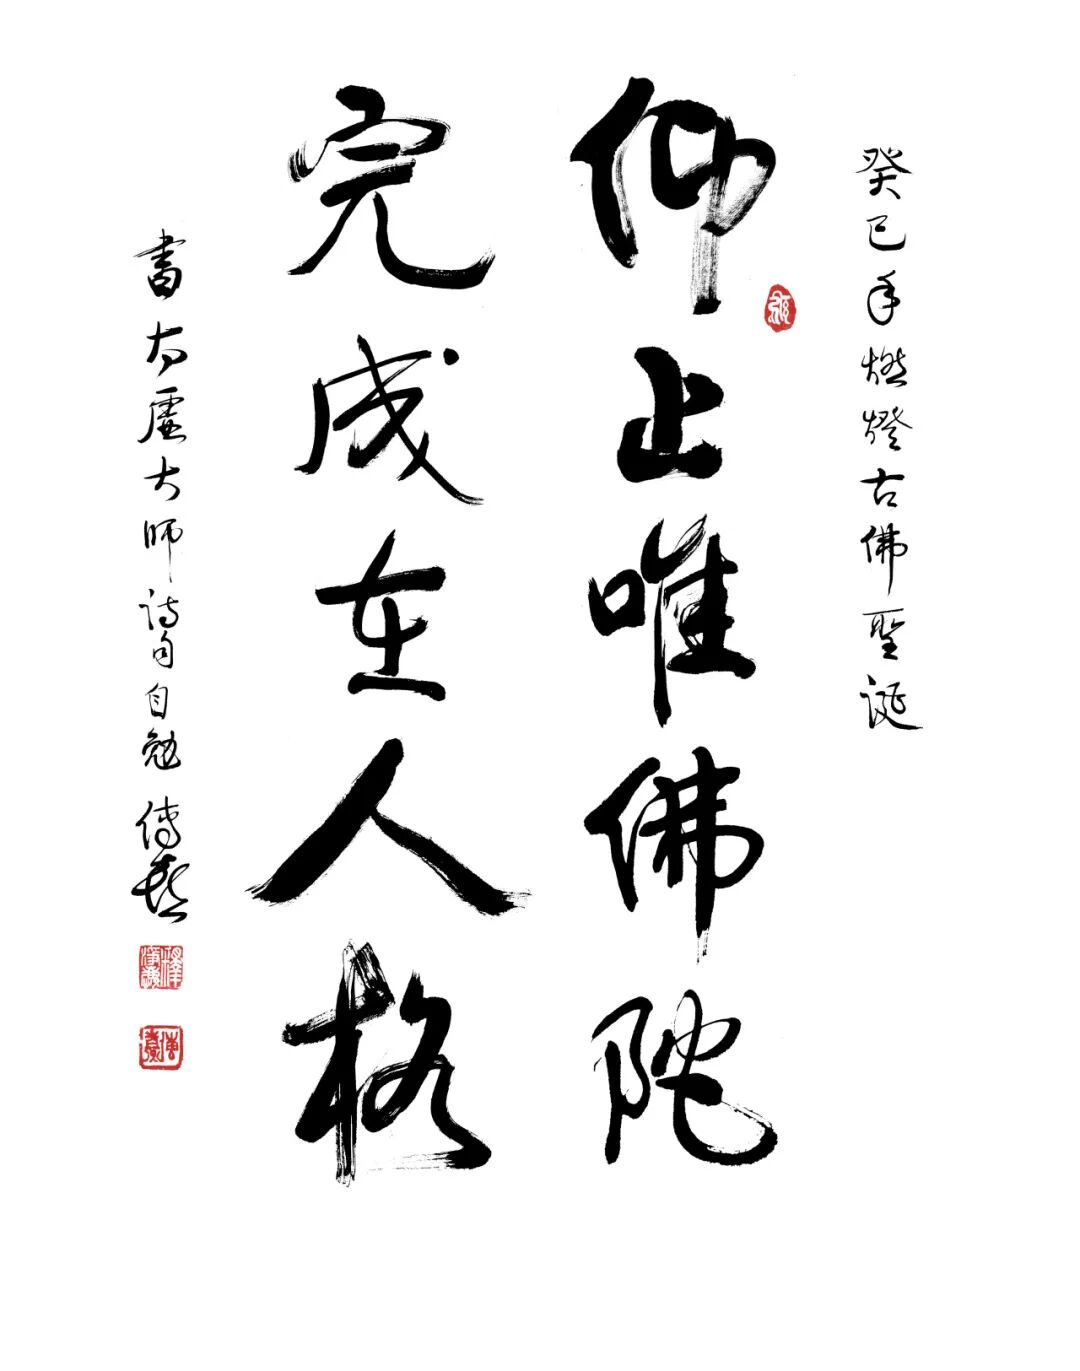 癸巳年燃燈古佛聖誕
仰止唯佛陀
完成在人格
書太虛大師詩句自勉 傳喜